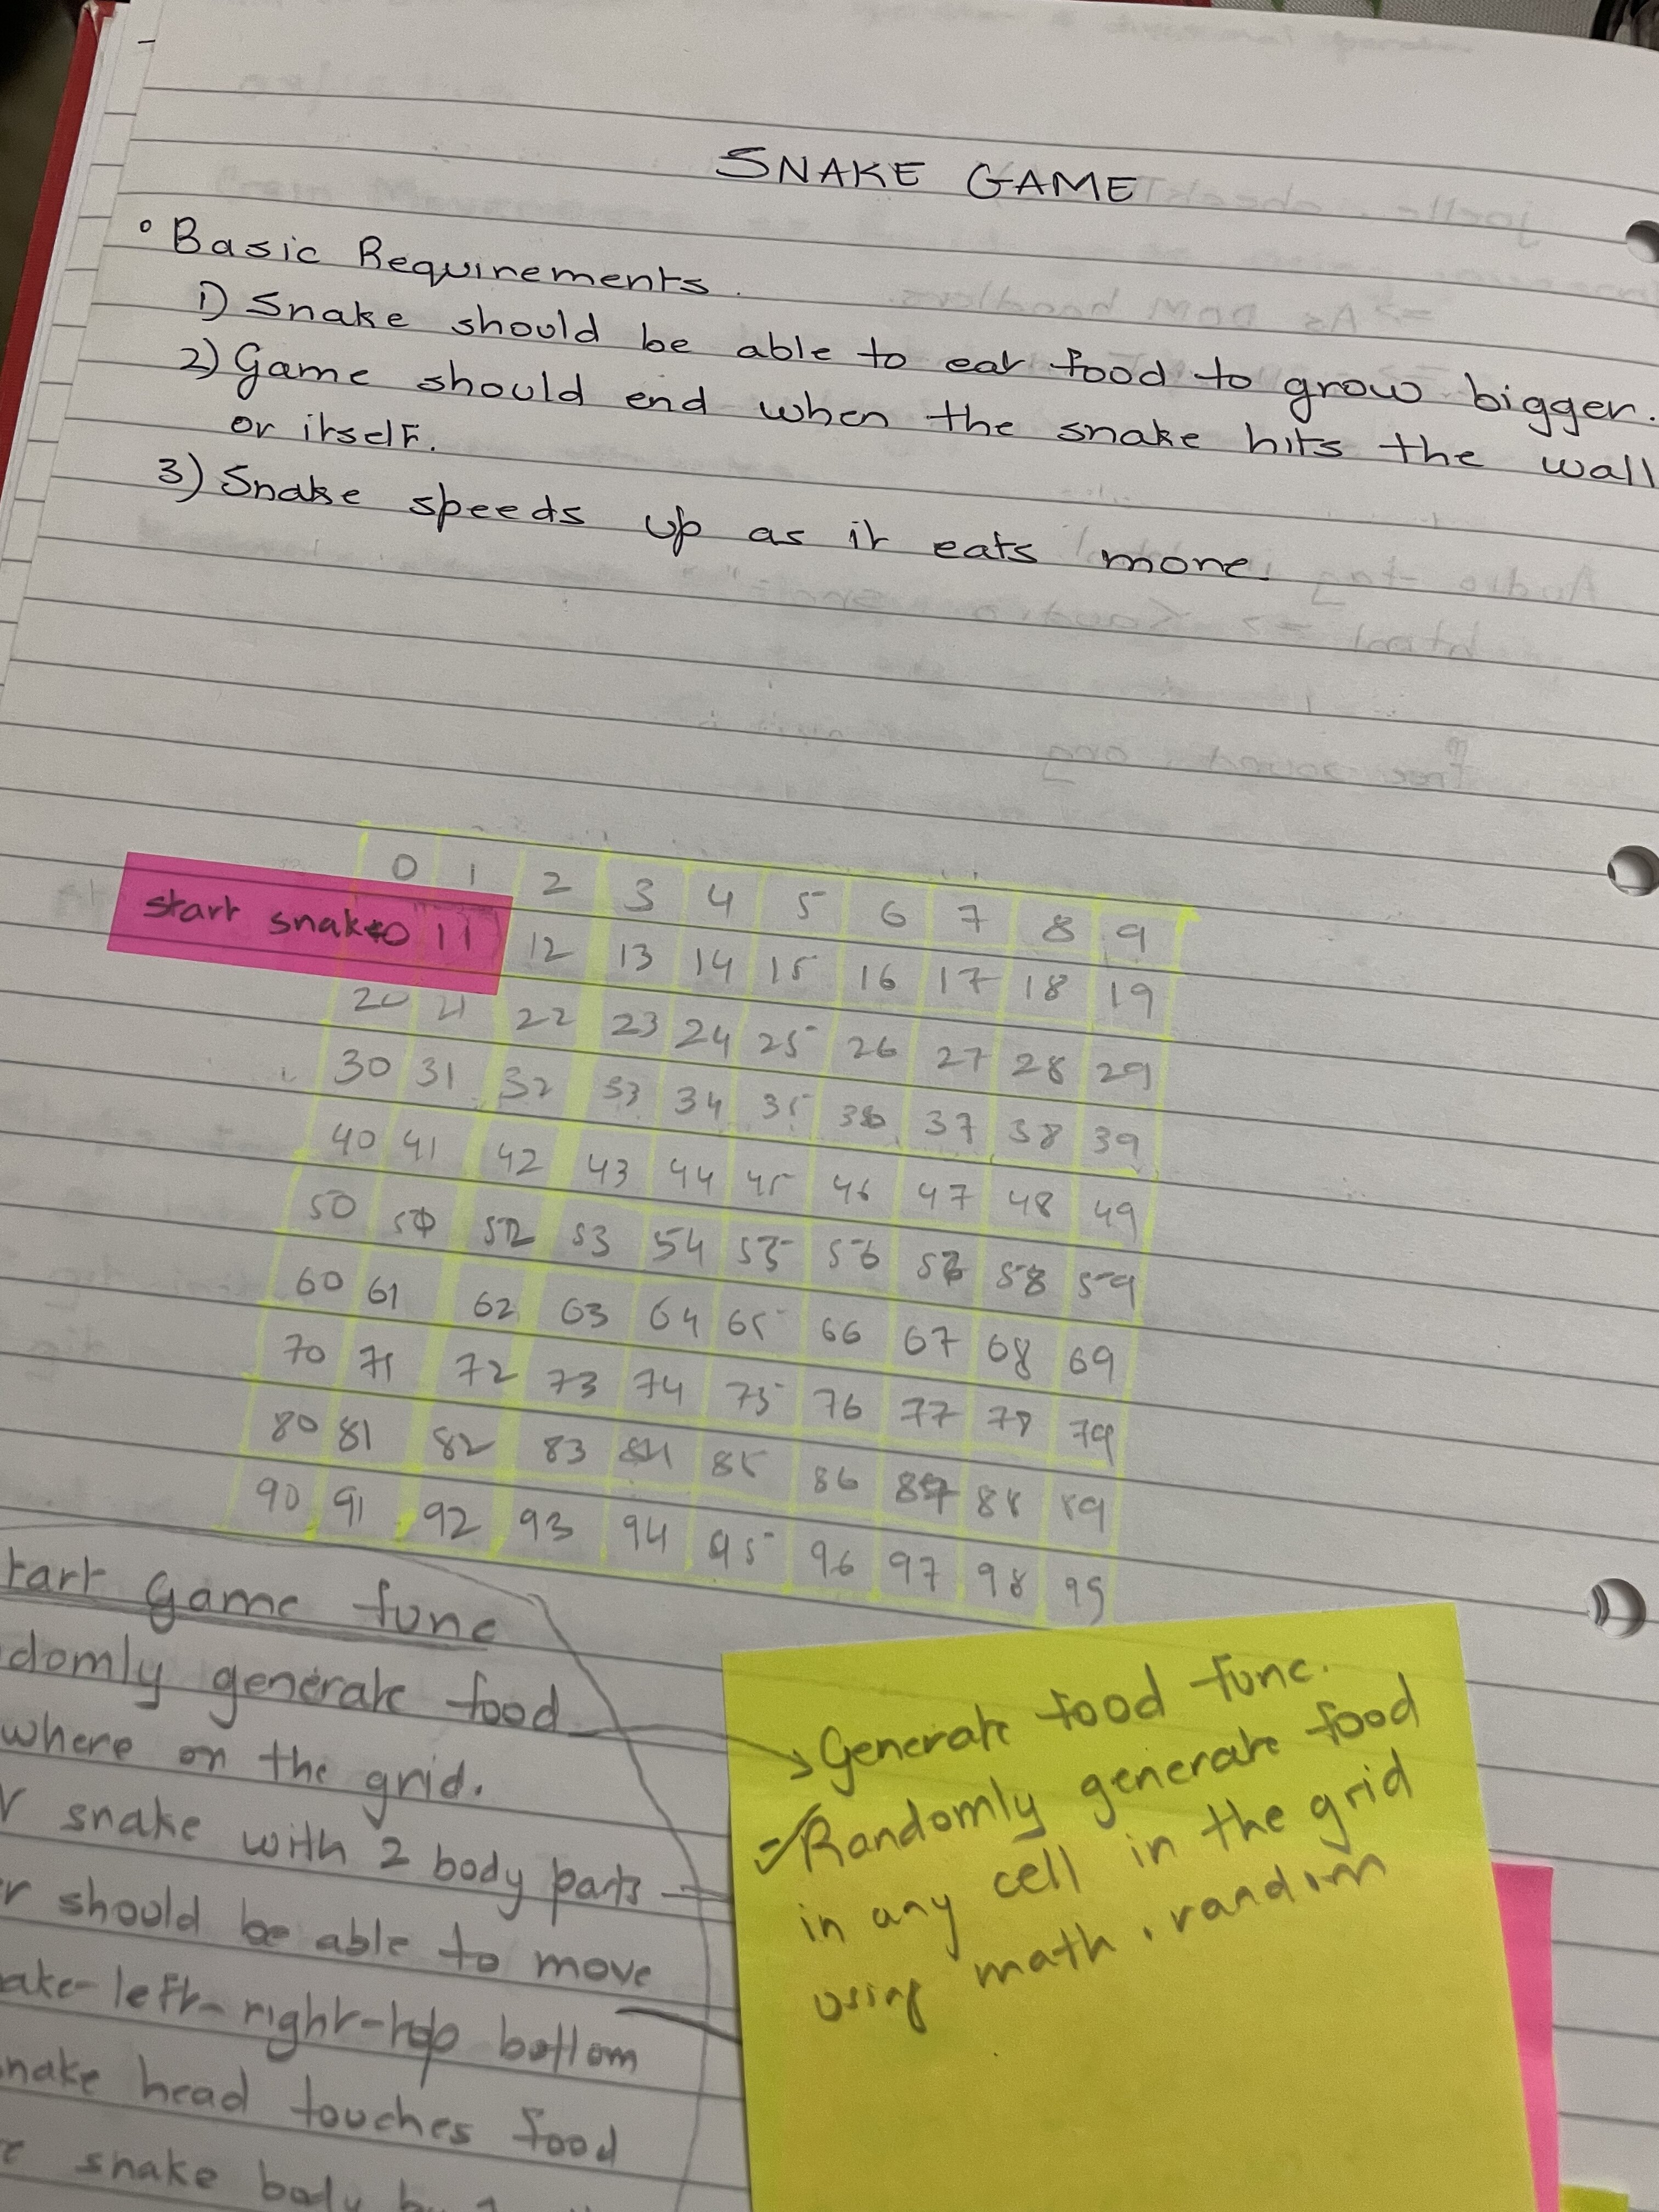 SNAKE GAME
° Basic Requirements.
1) Snake should be able to eat food to grow bigger.
2) Game should end when the snake hits the wall
or itself.
3) Snake speeds up as it eats more.
0 1 2 3 4 5 6 7 8 9
start snake 10 11 12 13 14 15 16 17 18 19
20 21 22 23 24 25 26 27 28 29
30 31 32 33 34 35 36 37 38 39
40 41 42 43 44 45 46 47 48 49
50 51 52 53 54 55 56 57 58 59
60 61 62 63 64 65 66 67 68 69
70 71 72 73 74 75 76 77 78 79
80 81 82 83 84 85 86 87 88 89
90 91 92 93 94 95 96 97 98 99
tart Game func
domly generate food
where on the grid.
snake with 2 body parts
r should be able to move
ake-left-right-top bottom
nake head touches food
snake body by
Generate food func.
Randomly generate food
in any cell in the grid
using math.random